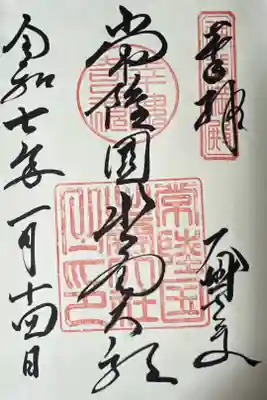 奉拝
常陸國出雲大社
令和七年一月十四日
常陸国
出雲大社
之印